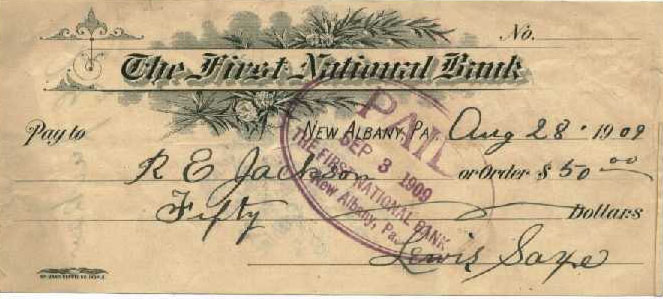 No.
The First National Bank
New Albany, Pa. Aug 28 1909
Pay to R E Jackson or Order $ 50.00
Fifty Dollars
Lewis Saxe
PAID
SEP 3 1909
THE FIRST NATIONAL BANK
New Albany, Pa.